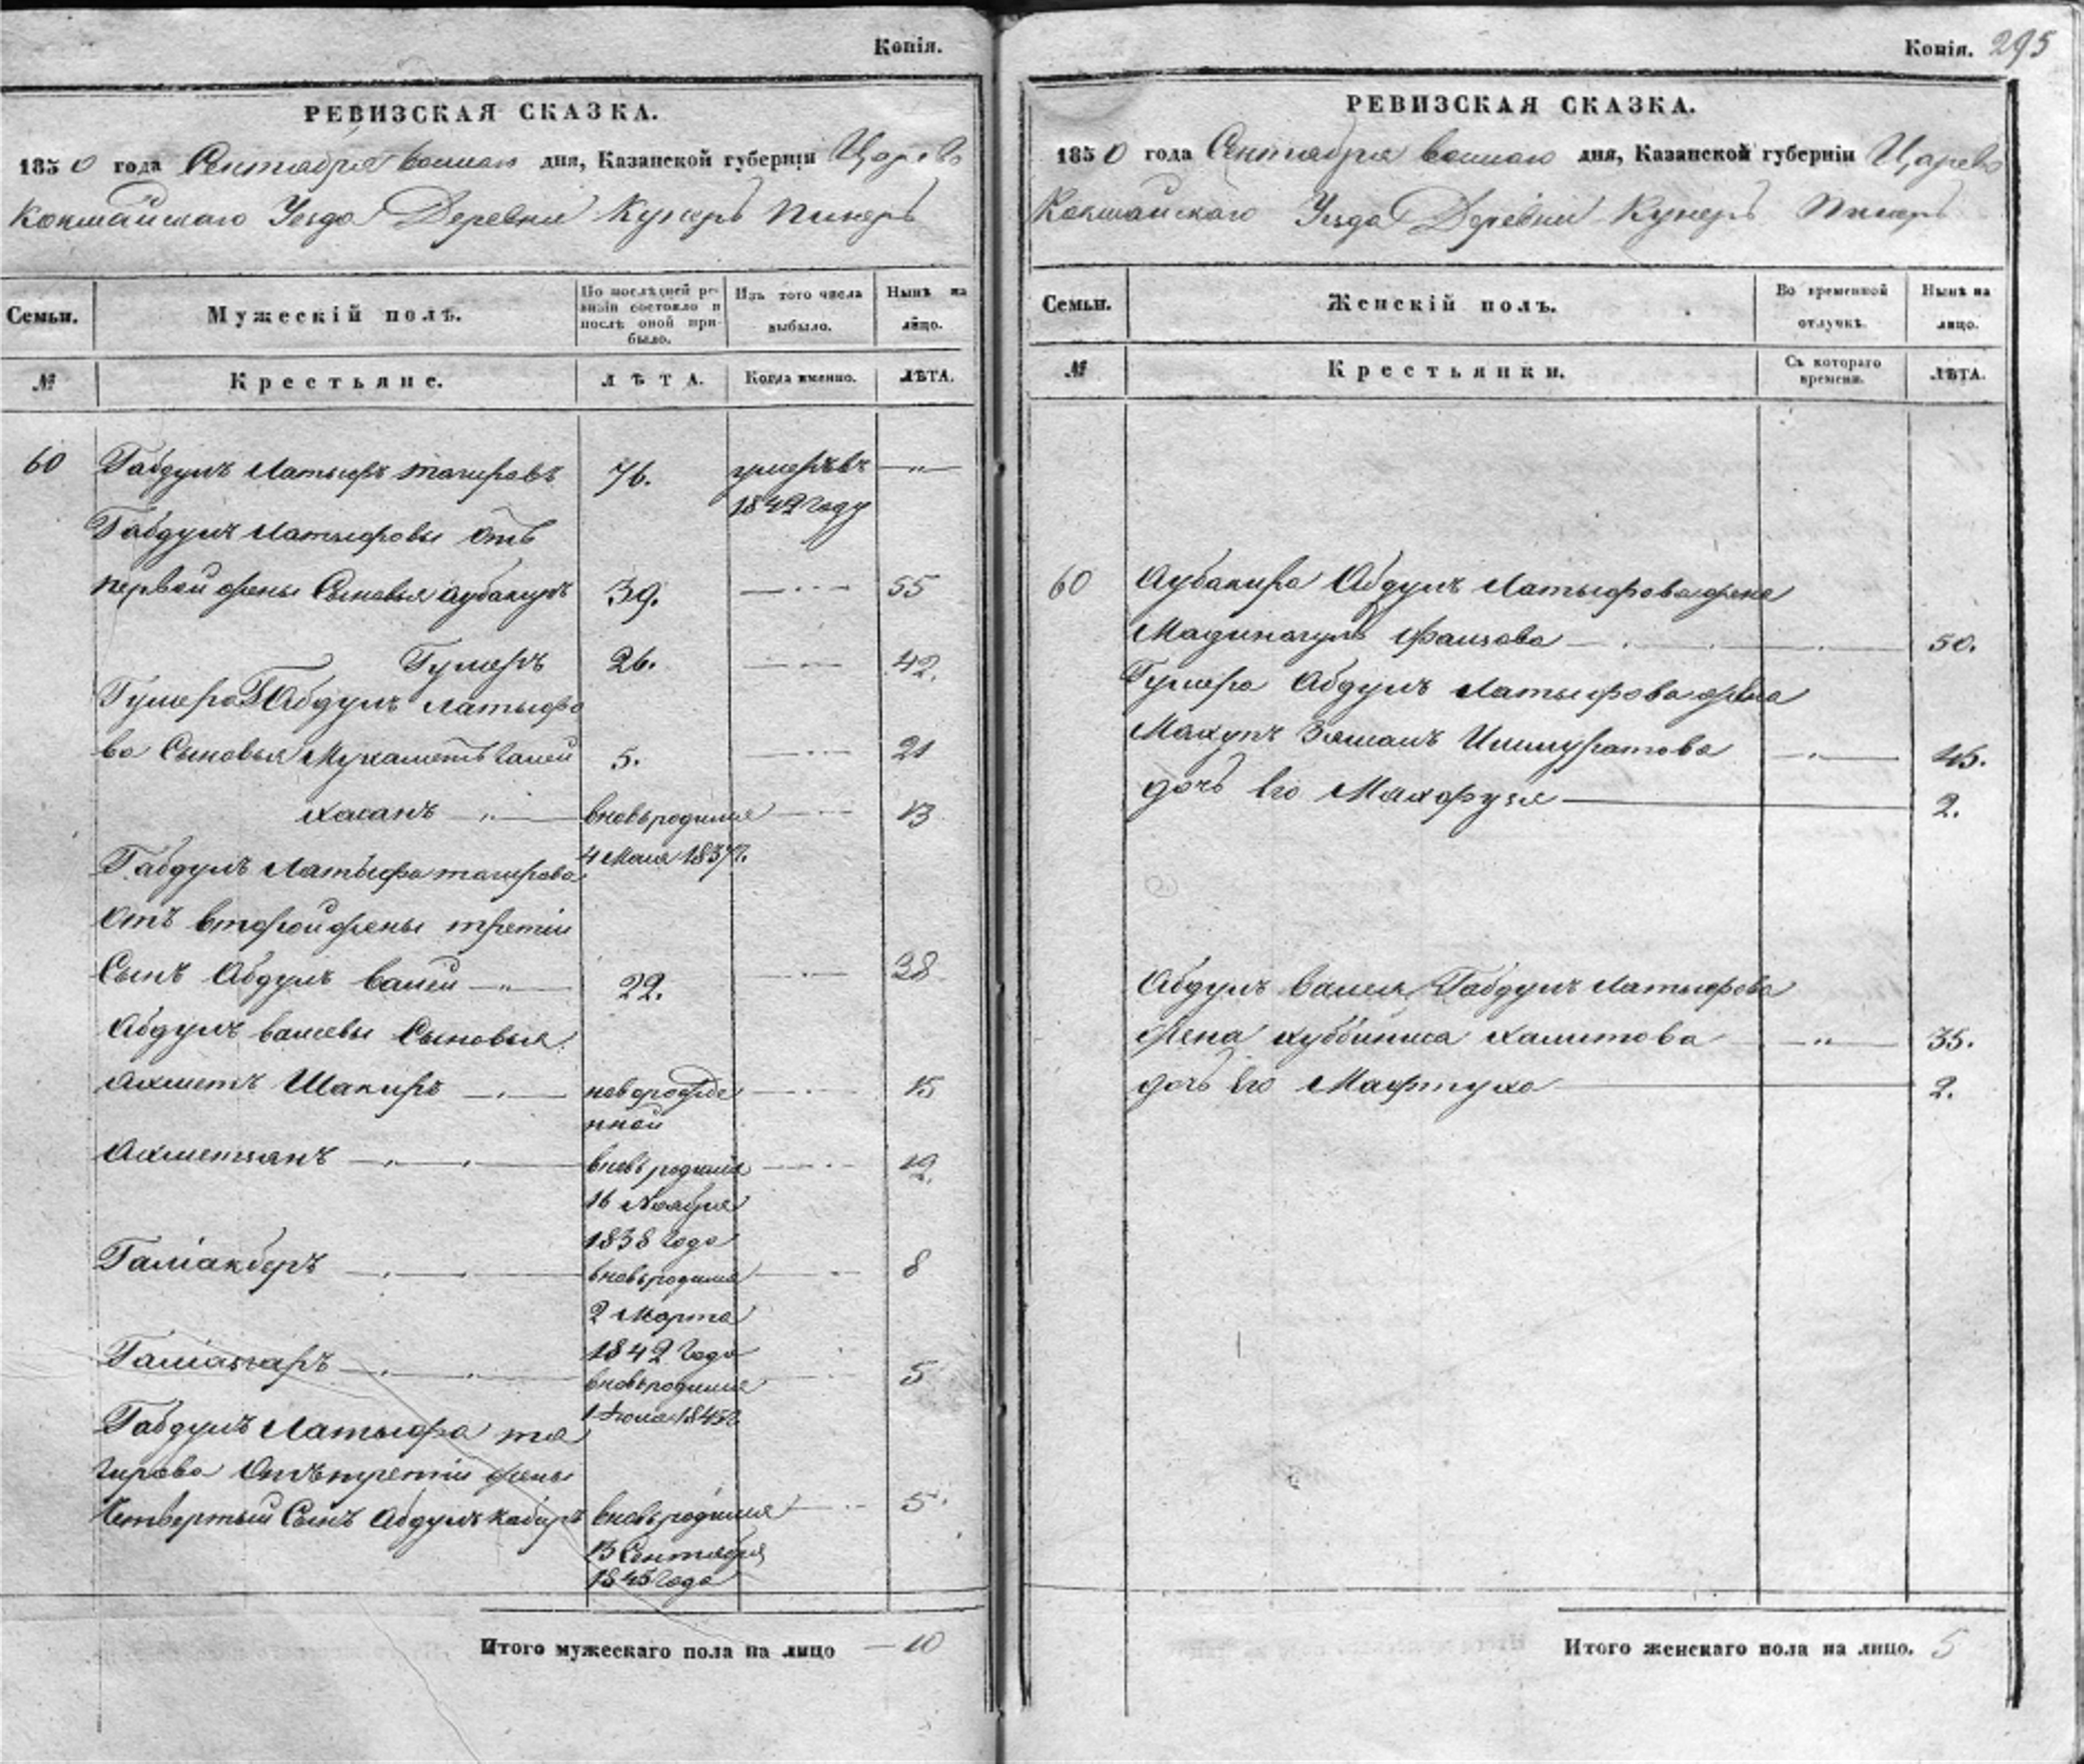 Копія.
РЕВИЗСКАЯ СКАЗКА.
1850 года Сентября дня, Казанской губерніи Царево
Кокшайскаго Уезда Деревни Кунеръ Пинеръ
Семьи. Мужескій полъ. По послѣдней ре- Изъ того числа Нынѣ на
визіи состояло и
послѣ оной при- выбыло. лицо.
было.
№ Крестьяне. ЛѢТА. Когда именно. ЛѢТА.
60 Габдулъ Латыфъ тагировъ 76. умеръ въ — „ —
1842 году
Габдулъ Латыфовы отъ
первой жены Сыновья аубакиръ 39. 55
Гумеръ 26. 42.
Гумера Габдулъ латыфо
ва Сыновья Мухаметъ галей 5. 21
хасанъ вновь родился 13
4 Мая 1837г.
Габдулъ Латыфа тагирова
отъ второй жены третіи
Сынъ Абдулъ валей 22. 38
Абдулъ валеевы Сыновья
Ахметъ Шакиръ новорожде 15
нной
Ахметзянъ вновь родился 12.
16 Ноября
1838 года
Галіакберъ вновь родился 8
2 Марта
1842 года
Галіазгаръ вновь родился 5
1845г.
Габдулъ Латыфа та
гирова отъ третіи жены
Четвертый Сынъ Абдулъ кабиръ вновь родился 5
13 Сентября
1845 года
Итого мужескаго пола на лицо — 10
Копія. 295
РЕВИЗСКАЯ СКАЗКА.
1850 года Сентября дня, Казанской губерніи Царево
Кокшайскаго Уезда Деревни Кунеръ Пинеръ
Семьи. Женскій полъ. Во временной Нынѣ на
отлучкѣ. лицо.
№ Крестьянки. Съ котораго ЛѢТА.
времени.
60 Аубакира Абдулъ Латыфова жена
Мадинагуль Фаизова 50.
Гумера Абдулъ Латыфова жена
Махупъ Замалъ Ишмуратова 45.
дочь его Махфузя 2.
Абдулъ валея Габдулъ Латыфова
жена хуббиниса халитова 35.
дочь его Мафтуха 2.
Итого женскаго пола на лицо. 5